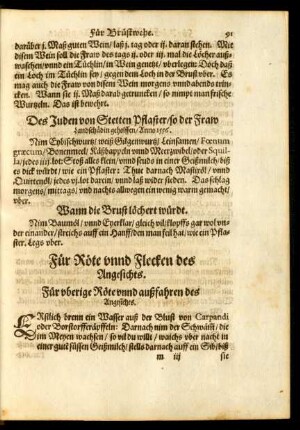 Für Brüstwehe. 91
darüber ij. Maß guten Wein/ laß j. tag oder ij. daran stehen. Mit
disem Wein soll die Fraw des tags ij. oder iij. mal die Löcher auß-
waschen/vnnd ein Tüchlin/ im Wein genetzt/ vberlegen: Doch daß
ein Loch im Tüchlin sey/ gegen dem Loch in der Brust vber. Es
mag auch die Fraw von disem Wein morgens vnnd abendts trin-
cken. Wann sie ij. Maß darab getruncken/ so nimpt man frische
Wurtzeln. Das ist bewehrt.
Des Juden von Stetten Pflaster/ so der Fraw
Landschädin geholffen/ Anno 1556.
Nim Ephischwurtz/ weiß Gilgenwurtz/ Leinsamen/ Foenum
græcum/ Bonenmeel/ Käßbappeln vnnd Merzwibel/ oder Squil-
la/ jedes iiij. lot Stoß alles klein/ vnnd seuds in einer Geißmilch/ biß
es dick würdt/ wie ein Pflaster: Thue darnach Mastixöl/ vnnd
Quittenöl/ jedes vj. lot darein/ vnnd laß wider sieden. Das schlag
morgens/ mittags/ vnd nachts/ allwegen ein wenig warm gemacht/
vber.
Wann die Brust löchert würdt.
Nim Baumöl/ vnnd Eyerklar/ gleich vil/ klopffs gar wol vn-
der einander/ streichs auff ein Hanff/ den man feil hat/ wie ein Pfla-
ster. Legs vber.
Für Röte vnnd Flecken des
Angesichts.
Für vberige Röte vnnd außfahren des
Angesichts.
ERstlich brenn ein Wasser auß der Blust von Carpundi
oder Borstorfferäpffeln: Darnach nim der Schwäm/ die
im Meyen wachsen/ so vil du wilt/ waichs vber nacht in
einer gut süssen Geißmilch/ stells darnach auff ein Sib/ biß
m iij sie